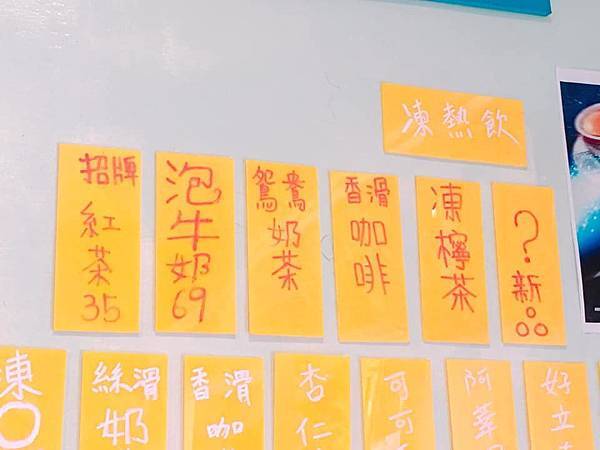 凍熱飲
招牌
紅茶
35
泡牛奶
69
鴛鴦
奶茶
香滑
咖啡
凍檸茶
?新
凍
絲滑
奶
香滑
咖
杏仁
可可
阿華
好立